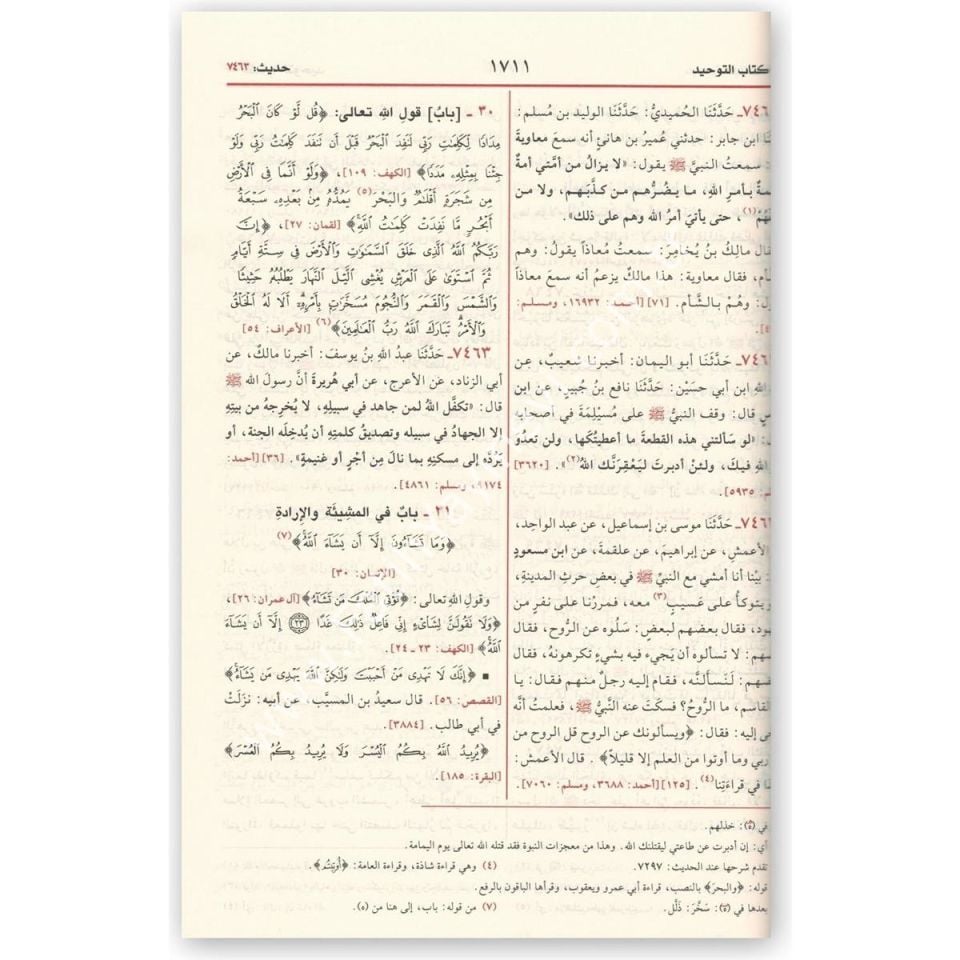 كتاب التوحيد
١٧١١
حديث: ٧٤٦٣
٧٤٦ـ حَدَّثَنَا الحُميديُّ: حَدَّثَنَا الوليد بن مُسلم:
ابن جابر: حدثني عُميرُ بن هانئ أنه سمعَ معاوية
سمعتُ النبيَّ ﷺ يقول: «لا يزالُ من أمَّتي أمةٌ
بأمرِ الله، ما يضُرُّهم من كذَّبَهم، ولا من
(١)، حتى يأتيَ أمرُ الله وهم على ذلك».
مالكُ بنُ يُخامِرَ: سمعتُ مُعاذاً يقولُ: وهم
فقال معاوية: هذا مالكٌ يزعمُ أنه سمعَ معاذاً
وهُمْ بالشَّام. [٧١] [أحمد: ١٦٩٣٢، ومسلم:
٧٤٦ـ حَدَّثَنَا أبو اليمان: أخبرنا شعيبٌ، عن
ابن أبي حسَيْن: حَدَّثَنَا نافعُ بنُ جُبيرٍ، عن ابن
قال: وقف النبيُّ ﷺ على مُسَيْلِمَةَ في أصحابِه
«لو سألتني هذه القطعةَ ما أعطيتُكَها، ولن تعدُوَ
الله فيكَ، ولئنْ أدبرتَ ليَعْقِرَنَّك اللهُ(٢)». [٣٦٢٠]
٥٩٣٥].
٧٤٦ـ حَدَّثَنَا موسى بن إسماعيل، عن عبد الواحد،
الأعمشِ، عن إبراهيمَ، عن علقمةَ، عن ابن مسعودٍ
بيْنا أنا أمشي مع النبيِّ ﷺ في بعضِ حرثِ المدينةِ،
يتوكأُ على عَسيبٍ(٣) معه، فمرَرْنا على نفرٍ من
فقال بعضُهم لبعضٍ: سَلُوه عن الرُّوح، فقال
لا تسألوه أن يَجيءَ فيه بشيءٍ تكرهونهُ، فقال
لَنَسألنَّه، فقام إليه رجلٌ منهم فقال: يا
القاسم، ما الرُّوحُ؟ فسكتَ عنه النَّبيُّ ﷺ، فعلمتُ أنَّه
إليه: فقال: ﴿ويسألونك عن الروح قل الروح من
ربي وما أوتوا من العلم إلا قليلاً﴾. قال الأعمش:
في قراءَتِنا(٤). [١٢٥] [أحمد: ٣٦٨٨، ومسلم: ٧٠٦٠].
٣٠ ـ [بابُ] قولِ اللهِ تعالى: ﴿قُل لَّوْ كَانَ ٱلْبَحْرُ
مِدَادًا لِّكَلِمَٰتِ رَبِّى لَنَفِدَ ٱلْبَحْرُ قَبْلَ أَن تَنفَدَ كَلِمَٰتُ رَبِّى وَلَوْ
جِئْنَا بِمِثْلِهِۦ مَدَدًا﴾ [الكهف: ١٠٩]، ﴿وَلَوْ أَنَّمَا فِى ٱلْأَرْضِ
مِن شَجَرَةٍ أَقْلَٰمٌ وَٱلْبَحْرَ(٥) يَمُدُّهُۥ مِنۢ بَعْدِهِۦ سَبْعَةُ
أَبْحُرٍ مَّا نَفِدَتْ كَلِمَٰتُ ٱللَّهِ﴾ [لقمان: ٢٧]، ﴿إِنَّ
رَبَّكُمُ ٱللَّهُ ٱلَّذِى خَلَقَ ٱلسَّمَٰوَٰتِ وَٱلْأَرْضَ فِى سِتَّةِ أَيَّامٍ
ثُمَّ ٱسْتَوَىٰ عَلَى ٱلْعَرْشِ يُغْشِى ٱلَّيْلَ ٱلنَّهَارَ يَطْلُبُهُۥ حَثِيثًا
وَٱلشَّمْسَ وَٱلْقَمَرَ وَٱلنُّجُومَ مُسَخَّرَٰتٍۭ بِأَمْرِهِۦٓ أَلَا لَهُ ٱلْخَلْقُ
وَٱلْأَمْرُ تَبَارَكَ ٱللَّهُ رَبُّ ٱلْعَٰلَمِينَ﴾(٦) [الأعراف: ٥٤]
٧٤٦٣ـ حَدَّثَنَا عبدُ الله بنُ يوسفَ: أخبرنا مالكٌ، عن
أبي الزناد، عَن الأعرجِ، عَن أبي هُريرةَ أنَّ رسولَ الله ﷺ
قال: «تكفَّل اللهُ لمن جاهد في سبيلِه، لا يُخرِجهُ من بيتِه
إلا الجهادُ في سبيله وتصديقُ كلمتِهِ أن يُدخِلَه الجنة، أو
يَرُدَّه إلى مسكنِهِ بما نالَ مِن أجْرٍ أو غنيمةٍ». [٣٦] [أحمد:
٩١٧٤، ومسلم: ٤٨٦١].
٣١ ـ بابٌ في المَشِيئَةِ والإِرادةِ
﴿وَمَا تَشَآءُونَ إِلَّآ أَن يَشَآءَ ٱللَّهُ﴾(٧)
[الإنسان: ٣٠]
وقولِ الله تعالى: ﴿تُؤْتِى ٱلْمُلْكَ مَن تَشَآءُ﴾ [آل عمران: ٢٦]،
﴿وَلَا تَقُولَنَّ لِشَا۟ىْءٍ إِنِّى فَاعِلٌ ذَٰلِكَ غَدًا ۝٢٣ إِلَّآ أَن يَشَآءَ
ٱللَّهُ﴾ [الكهف: ٢٣ ـ ٢٤].
▪ ﴿إِنَّكَ لَا تَهْدِى مَنْ أَحْبَبْتَ وَلَٰكِنَّ ٱللَّهَ يَهْدِى مَن يَشَآءُ﴾
[القصص: ٥٦]. قال سعيدُ بن المسيَّب، عن أبيه: نزلَتْ
في أبي طالب. [٣٨٨٤].
﴿يُرِيدُ ٱللَّهُ بِكُمُ ٱلْيُسْرَ وَلَا يُرِيدُ بِكُمُ ٱلْعُسْرَ﴾
[البقرة: ١٨٥].
في (ﻫ): خذلهم.
أي: إن أدبرت عن طاعتي ليقتلنك الله. وهذا من معجزات النبوة فقد قتله الله تعالى يوم اليمامة.
تقدم شرحها عند الحديث: ٧٢٩٧.
(٤) وهي قراءة شاذة، وقراءة العامة: ﴿أُوتِيتُم﴾.
قوله: ﴿والبحرَ﴾ بالنصب، قراءة أبي عمرو ويعقوب، وقرأها الباقون بالرفع.
بعدها في (ﻫ): سَخَّرَ: ذَلَّلَ.
(٧) من قوله: باب، إلى هنا من (ﻫ).